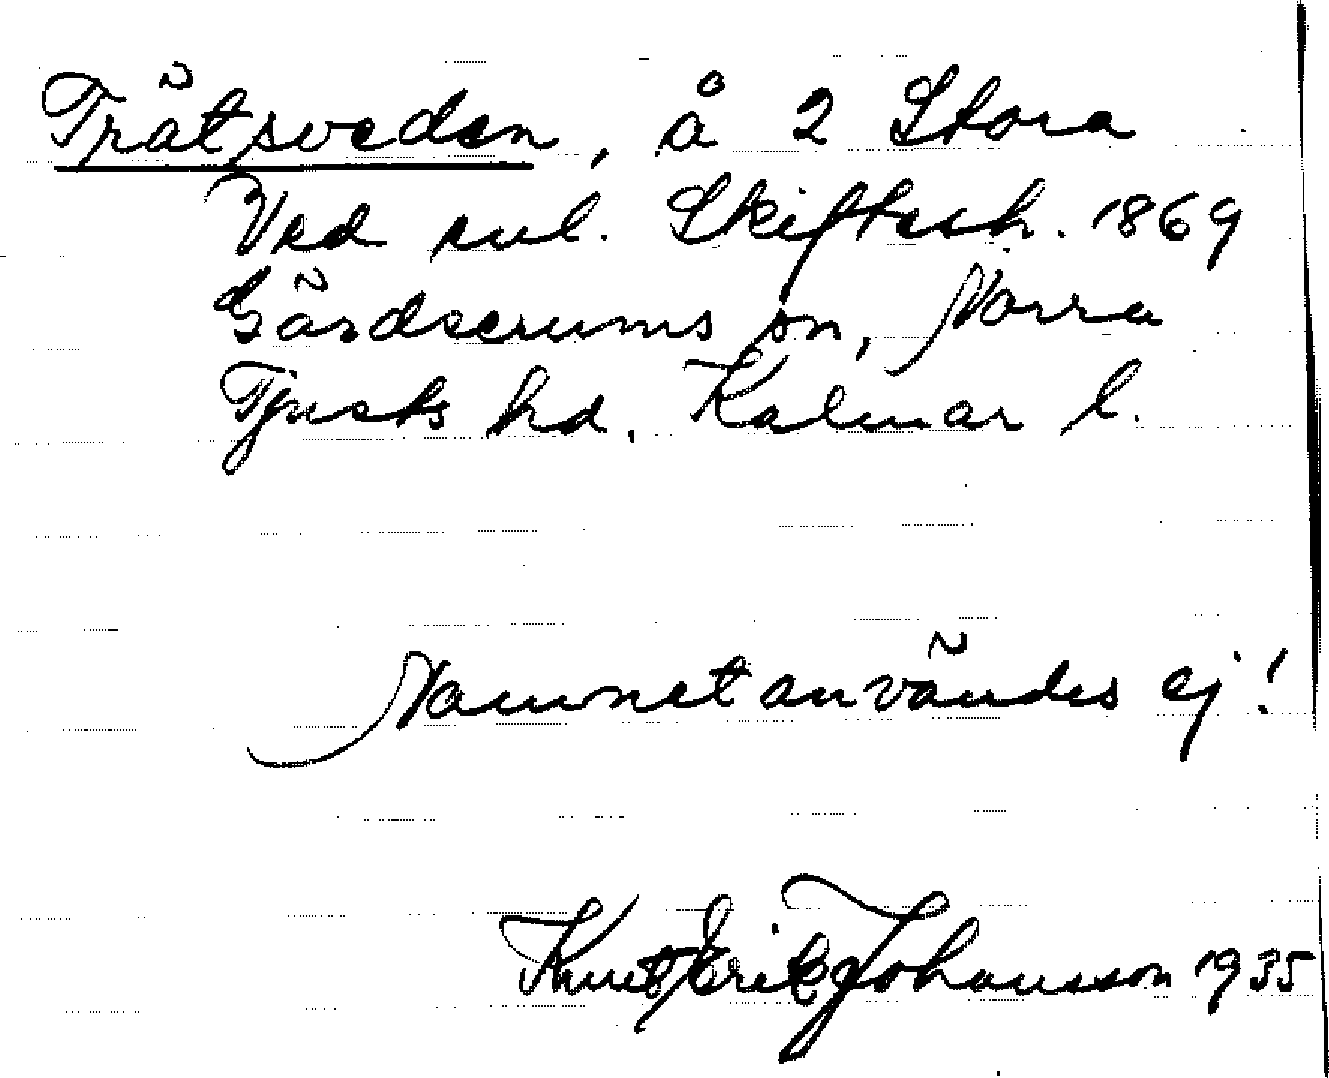 Trätsveden, å 2 Stora
Ved enl. Skiftesh. 1869
Gärdserums sn, Norra
Tjusts hd. Kalmar l.
Namnet användes ej!
Knut Erik Johansson 1935